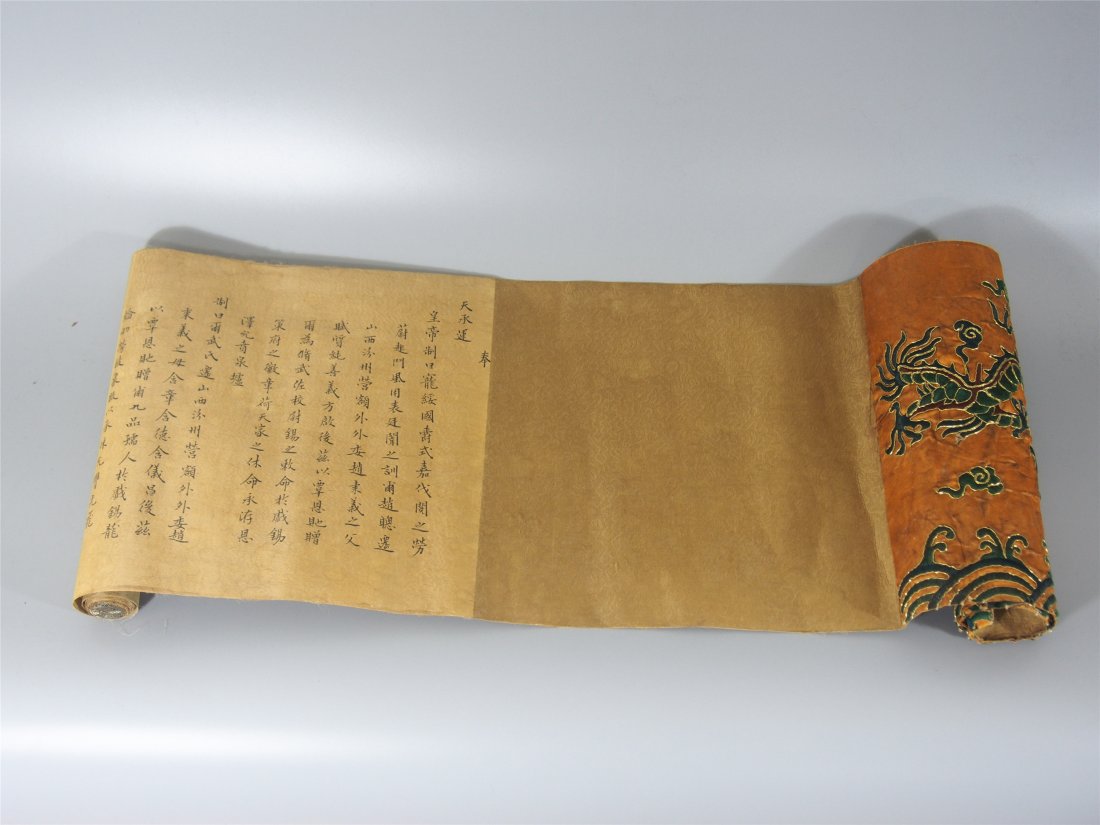 奉
天承運
皇帝制曰寵綏國爵式嘉伐閱之勞
蔚起門風用表廷闈之訓甫趙聰邊
山西汾州營額外外委趙秉義之父
賦質純善義方啟後茲以覃恩貤贈
爾為脩武佐校尉錫之敕命於戲錫
策府之徽章荷天家之休命承洊恩
澤光賁泉壚
制曰爾武氏邊山西汾州營額外外委趙
秉義之母含章含德含儀昌後茲
以覃恩貤贈甫九品孺人於戲錫龍